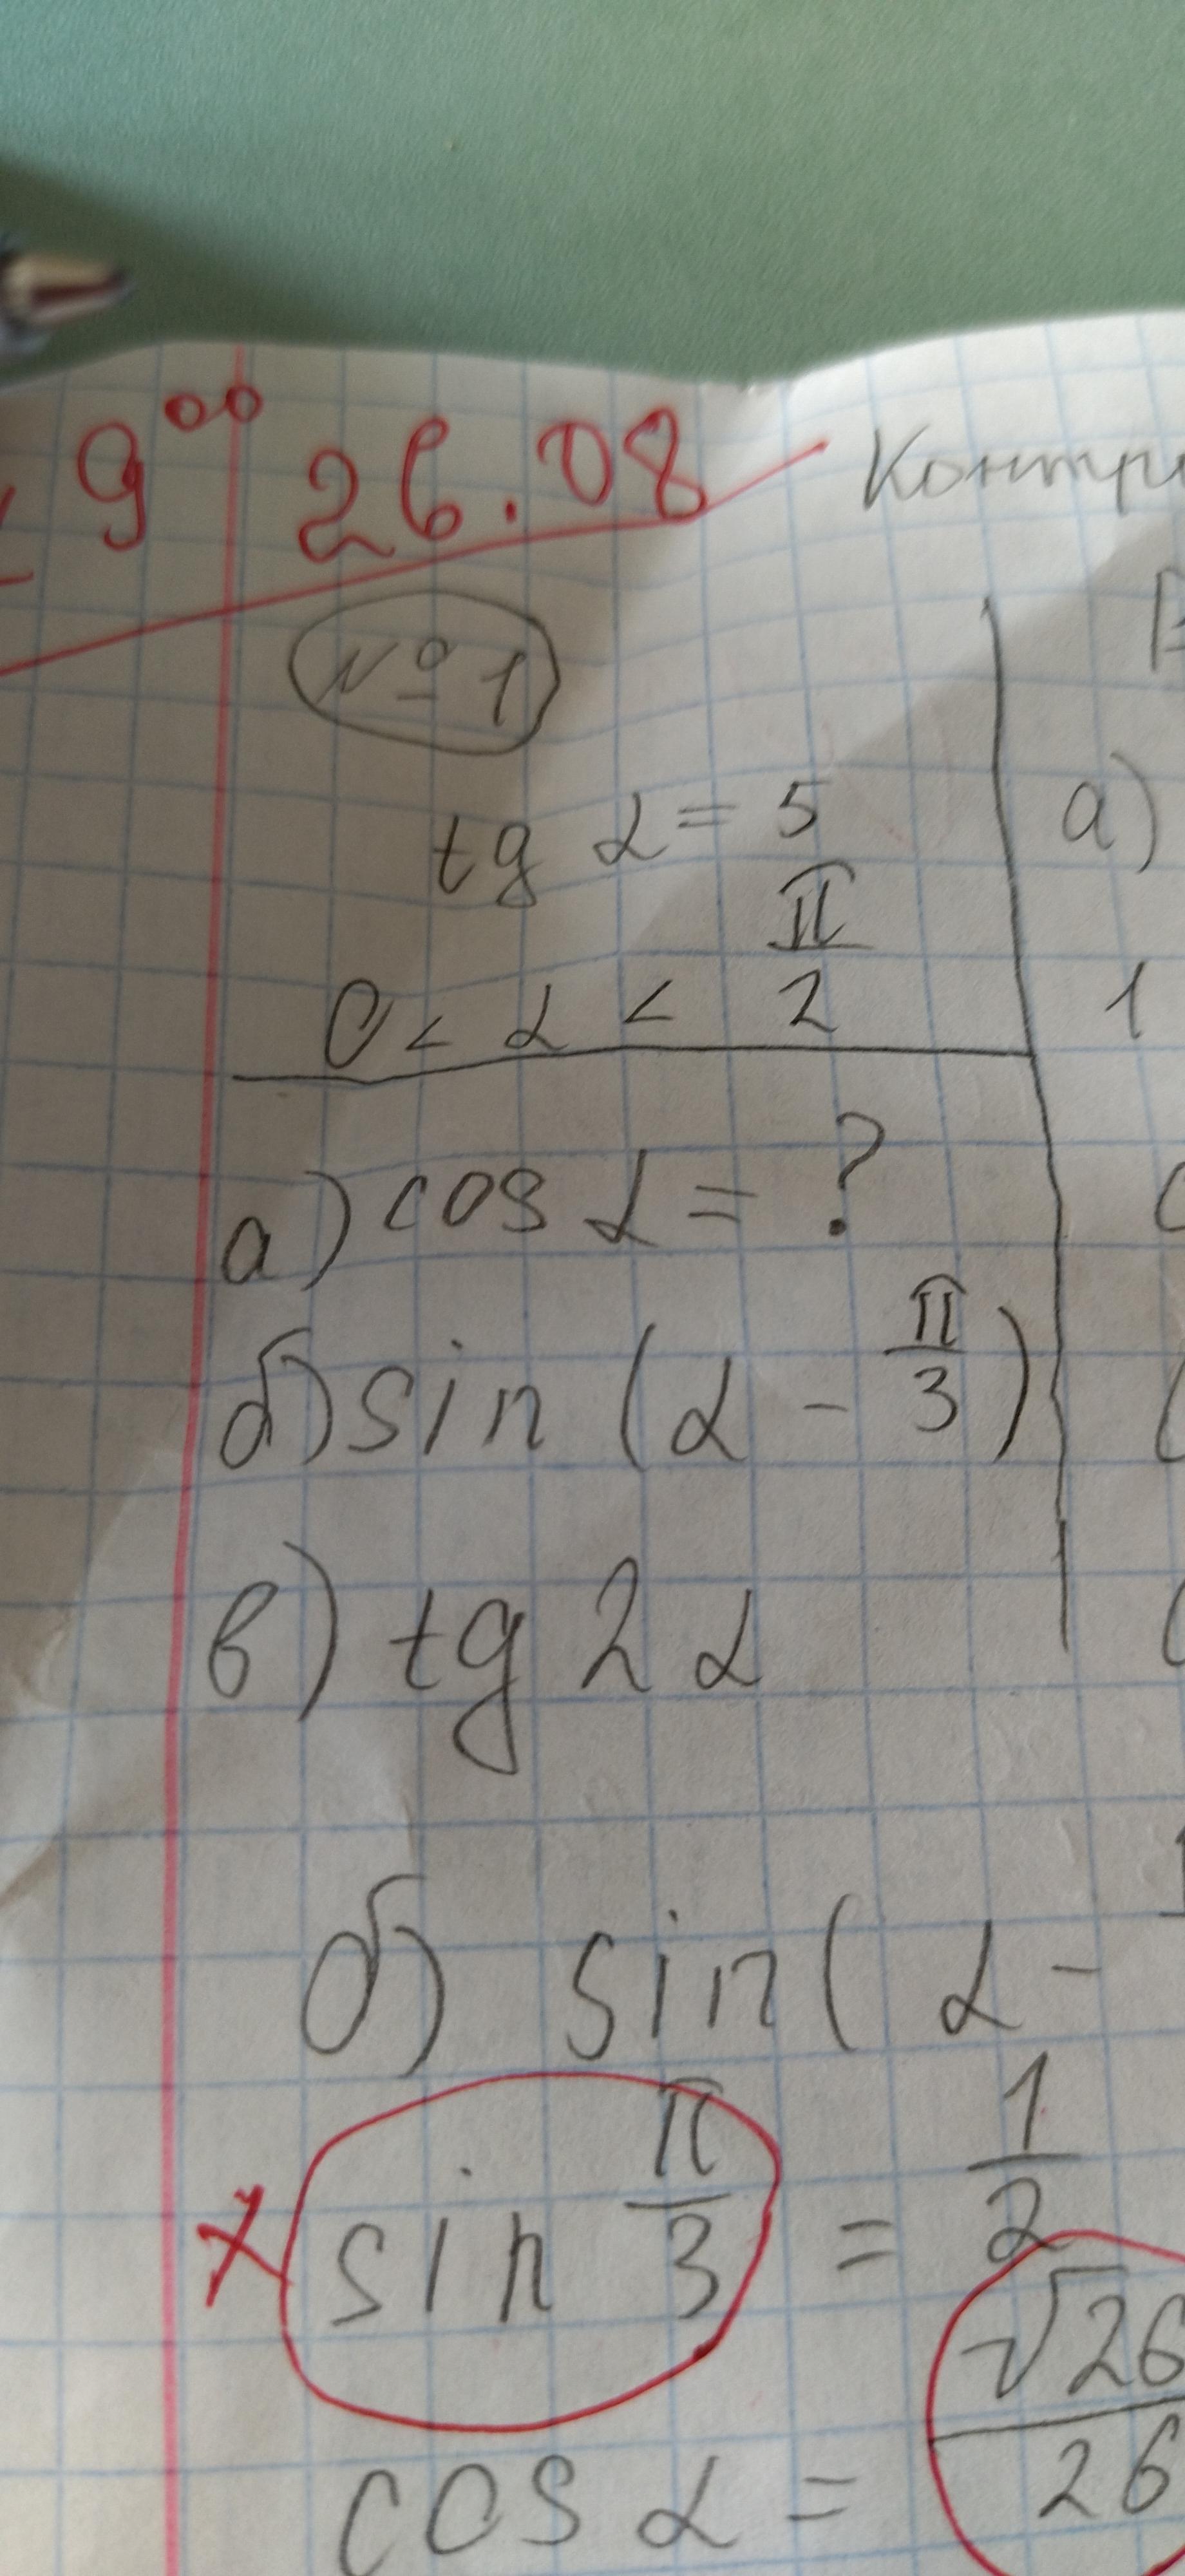 9⁰⁰ 26.08
№1
tg α = 5
0 < α < π/2
а) cos α = ?
б) sin (α - π/3)
в) tg 2α
а)
1
б) sin( α -
sin π/3 = 1/2
cos α = √26/26